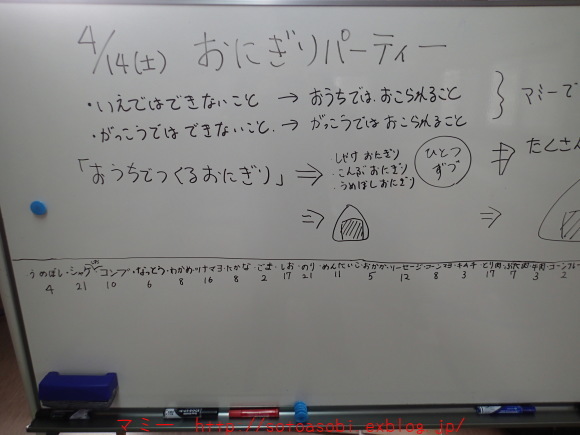 4/14(土) おにぎりパーティー
・いえではできないこと → おうちでは、おこられること
・がっこうでは できないこと. → がっこうでは おこられること
マミーで
「おうちでつくるおにぎり」 ⇒
・しゃけ おにぎり
・こんぶ おにぎり
・うめぼし おにぎり
ひとつ
ずつ
⇒ たくさん
⇒ ⇒
うめぼし・シャケ・コンブ・なっとう・わかめ・ツナマヨ・たかな・ごま・しお・のり・めんたいこ・おかか・ソーセージ・コーンマヨ・キムチ・とり肉・ぶた肉・牛肉・コーンフレー
4 21 10 6 8 16 8 2 17 21 11 5 12 8 3 17 7 3 2
マミー http://sotoasobi.exblog.jp/